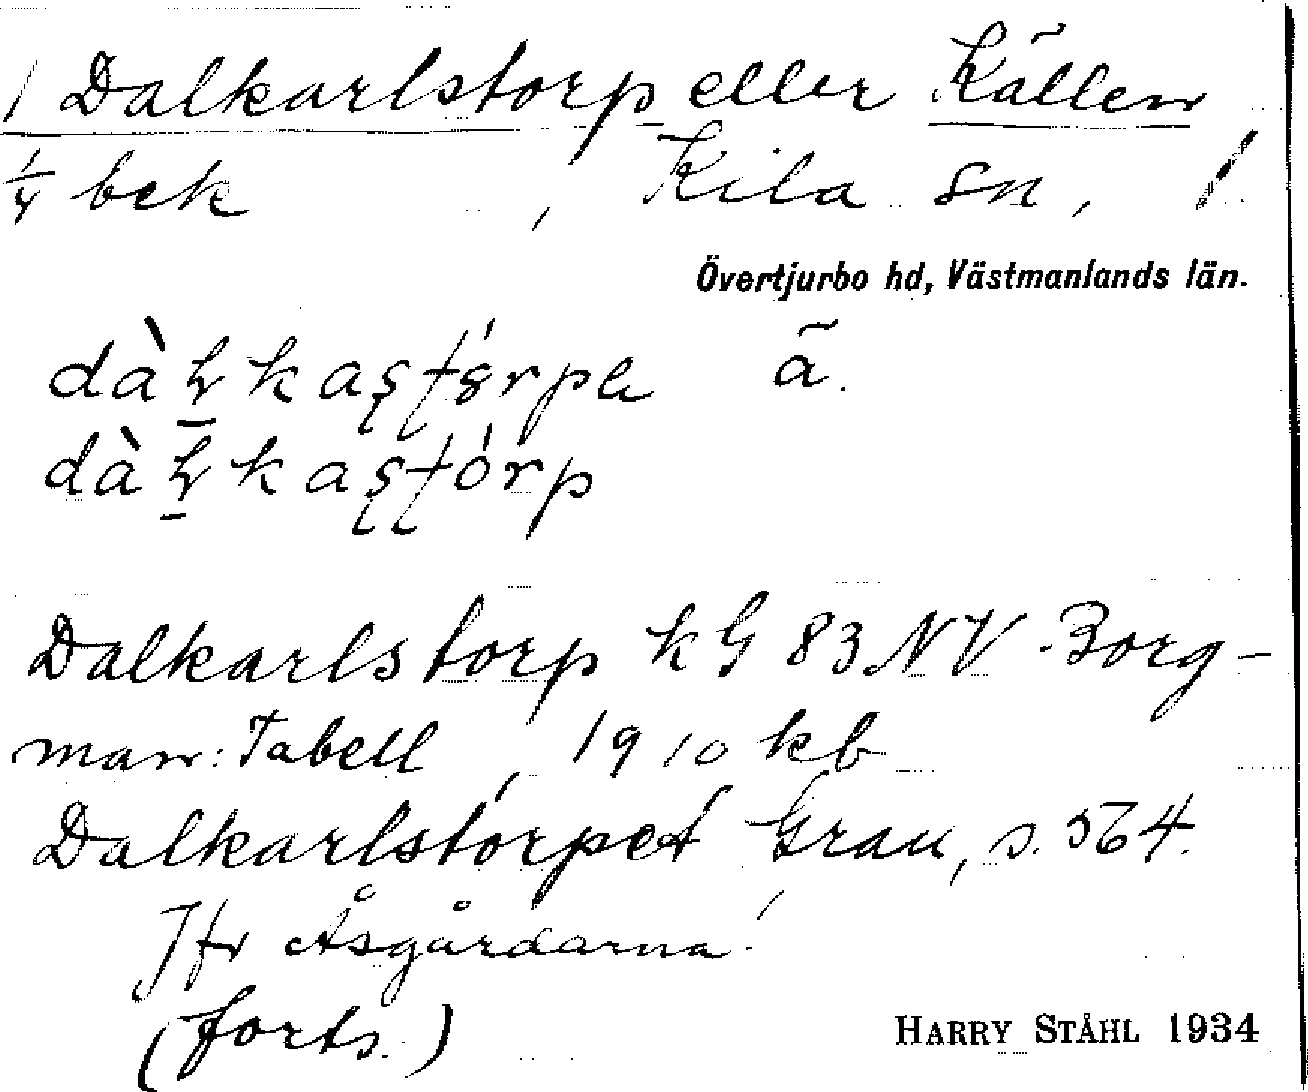 1 Dalkarlstorp eller Källen
1/4 bek , Kila sn, !
Övertjurbo hd, Västmanlands län.
ã.
Dalkarlstorp kG 83 NV Borg-
man: Tabell, 1910 kb
Dalkarlstorpet Grau, s. 564.
Jfr Åsgårdarna!
(forts.)
HARRY STÅHL 1934